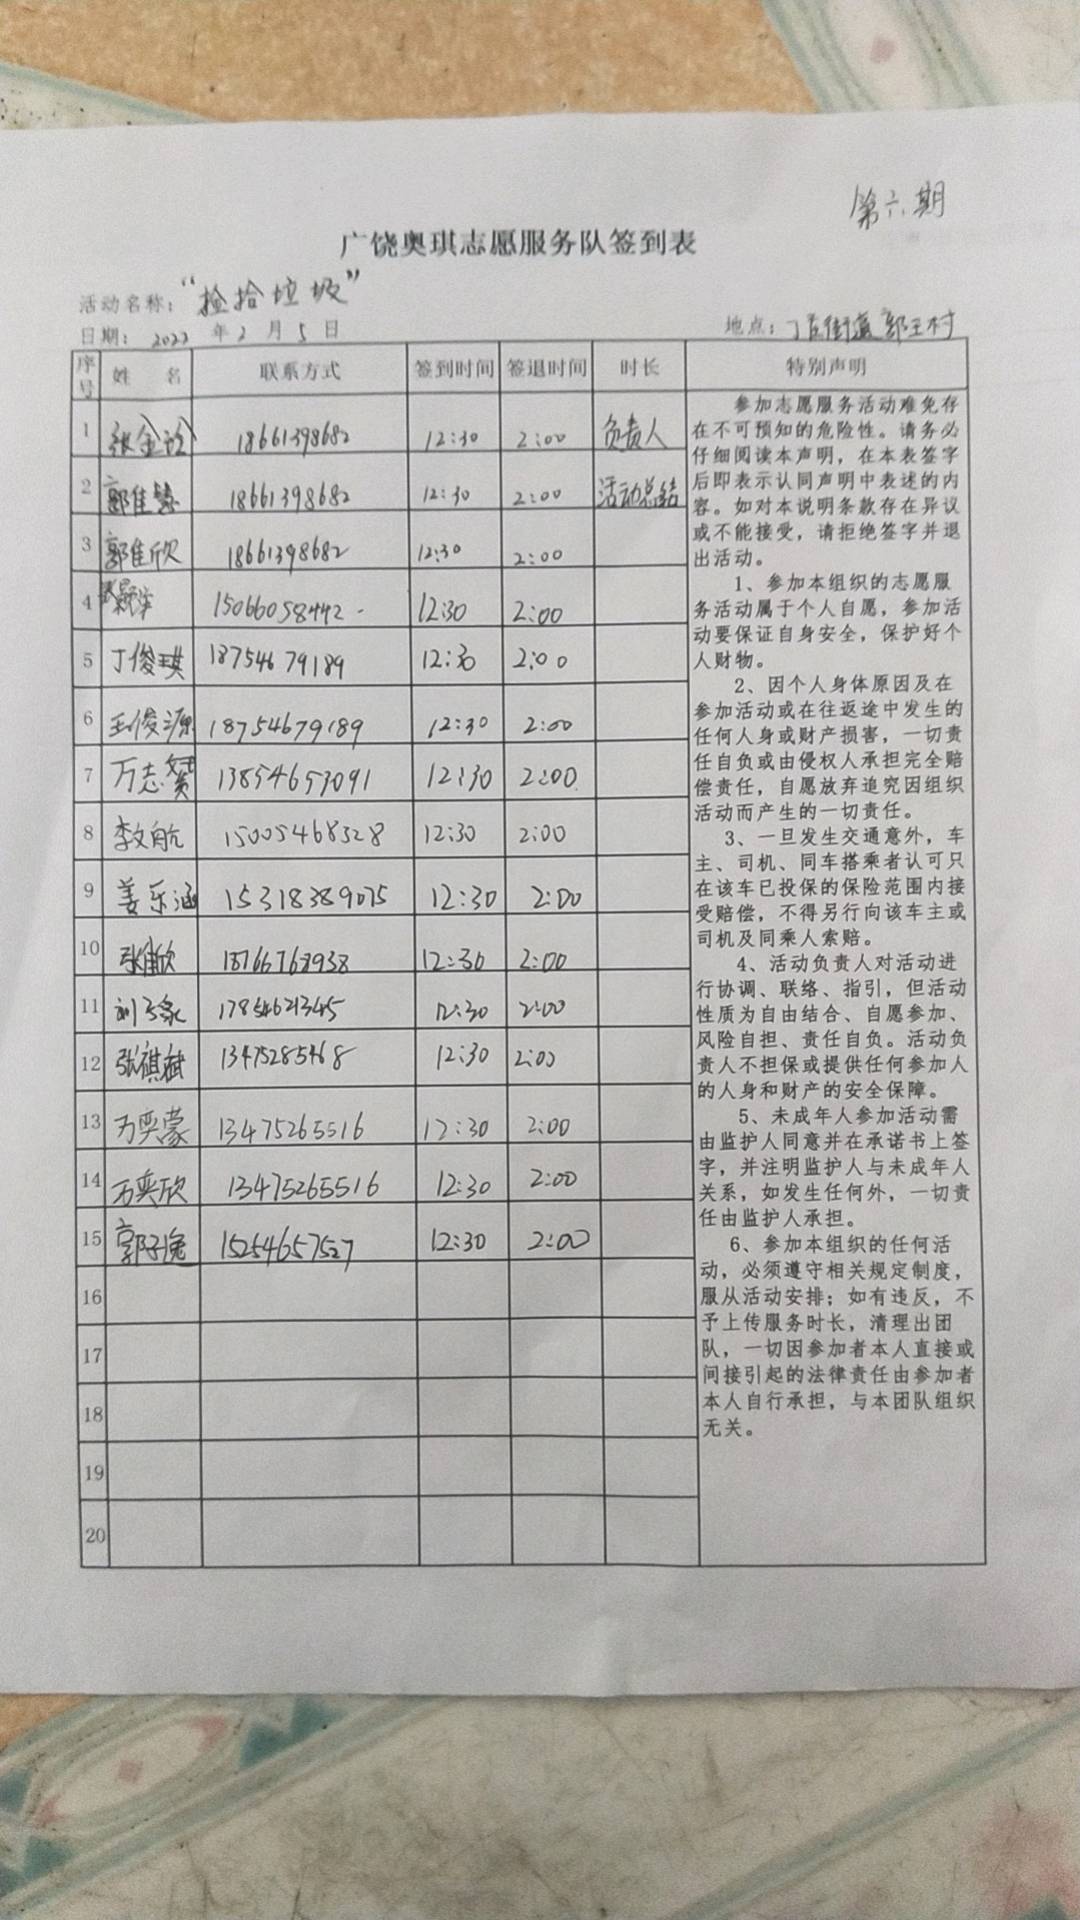 第六期
广饶奥琪志愿服务队签到表
活动名称：“捡拾垃圾”
日期：2022年2月5日 地点：丁庄街道郭王村
序号 姓名 联系方式 签到时间 签退时间 时长 特别声明
1 张金玲 18661398682 12:30 2:00 负责人
2 郭佳慧 18661398682 12:30 2:00 活动总结
3 郭佳欣 18661398682 12:30 2:00
4 15066058442 12:30 2:00
5 丁俊琪 18754679189 12:30 2:00
6 王俊源 18754679189 12:30 2:00
7 万志赟 13854653091 12:30 2:00
8 李文航 15005468328 12:30 2:00
9 姜乐涵 15318389075 12:30 2:00
10 张佳欣 18766768938 12:30 2:00
11 刘子豪 17854621345 12:30 2:00
12 张祺斌 13475285468 12:30 2:00
13 万奕蒙 13475265516 12:30 2:00
14 万奕欣 13475265516 12:30 2:00
15 郭子逸 15254657527 12:30 2:00
16
17
18
19
20
参加志愿服务活动难免存
在不可预知的危险性。请务必
仔细阅读本声明，在本表签字
后即表示认同声明中表述的内
容。如对本说明条款存在异议
或不能接受，请拒绝签字并退
出活动。
1、参加本组织的志愿服
务活动属于个人自愿，参加活
动要保证自身安全，保护好个
人财物。
2、因个人身体原因及在
参加活动或在往返途中发生的
任何人身或财产损害，一切责
任自负或由侵权人承担完全赔
偿责任，自愿放弃追究因组织
活动而产生的一切责任。
3、一旦发生交通意外，车
主、司机、同车搭乘者认可只
在该车已投保的保险范围内接
受赔偿，不得另行向该车主或
司机及同乘人索赔。
4、活动负责人对活动进
行协调、联络、指引，但活动
性质为自由结合、自愿参加、
风险自担、责任自负。活动负
责人不担保或提供任何参加人
的人身和财产的安全保障。
5、未成年人参加活动需
由监护人同意并在承诺书上签
字，并注明监护人与未成年人
关系，如发生任何外，一切责
任由监护人承担。
6、参加本组织的任何活
动，必须遵守相关规定制度，
服从活动安排；如有违反，不
予上传服务时长，清理出团
队，一切因参加者本人直接或
间接引起的法律责任由参加者
本人自行承担，与本团队组织
无关。